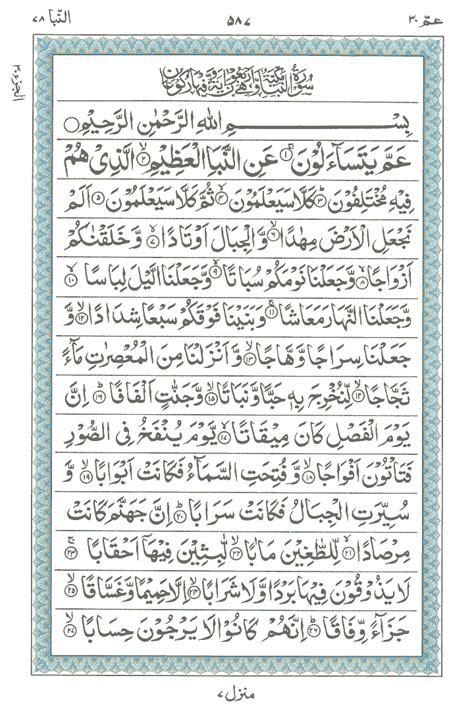 عمّ ٣٠
٥٨٧
النّبا ٧٨
بِسْمِ اللهِ الرَّحْمٰنِ الرَّحِيْمِ
عَمَّ يَتَسَآءَلُوْنَ ۝١ عَنِ النَّبَاِ الْعَظِيْمِ ۝٢ الَّذِيْ هُمْ
فِيْهِ مُخْتَلِفُوْنَ ۝٣ كَلَّا سَيَعْلَمُوْنَ ۝٤ ثُمَّ كَلَّا سَيَعْلَمُوْنَ ۝٥ اَلَمْ
نَجْعَلِ الْاَرْضَ مِهٰدًا ۝٦ وَّالْجِبَالَ اَوْتَادًا ۝٧ وَّخَلَقْنٰكُمْ
اَزْوَاجًا ۝٨ وَّجَعَلْنَا نَوْمَكُمْ سُبَاتًا ۝٩ وَّجَعَلْنَا الَّيْلَ لِبَاسًا ۝١٠
وَّجَعَلْنَا النَّهَارَ مَعَاشًا ۝١١ وَّبَنَيْنَا فَوْقَكُمْ سَبْعًا شِدَادًا ۝١٢ وَّ
جَعَلْنَا سِرَاجًا وَّهَّاجًا ۝١٣ وَّاَنْزَلْنَا مِنَ الْمُعْصِرٰتِ مَآءً
ثَجَّاجًا ۝١٤ لِّنُخْرِجَ بِهٖ حَبًّا وَّنَبَاتًا ۝١٥ وَّجَنّٰتٍ اَلْفَافًا ۝١٦ اِنَّ
يَوْمَ الْفَصْلِ كَانَ مِيْقَاتًا ۝١٧ يَّوْمَ يُنْفَخُ فِي الصُّوْرِ
فَتَاْتُوْنَ اَفْوَاجًا ۝١٨ وَّفُتِحَتِ السَّمَآءُ فَكَانَتْ اَبْوَابًا ۝١٩ وَّ
سُيِّرَتِ الْجِبَالُ فَكَانَتْ سَرَابًا ۝٢٠ اِنَّ جَهَنَّمَ كَانَتْ
مِرْصَادًا ۝٢١ لِّلطَّاغِيْنَ مَاٰبًا ۝٢٢ لّٰبِثِيْنَ فِيْهَآ اَحْقَابًا ۝٢٣
لَا يَذُوْقُوْنَ فِيْهَا بَرْدًا وَّلَا شَرَابًا ۝٢٤ اِلَّا حَمِيْمًا وَّغَسَّاقًا ۝٢٥
جَزَآءً وِّفَاقًا ۝٢٦ اِنَّهُمْ كَانُوْا لَا يَرْجُوْنَ حِسَابًا ۝٢٧
منزل ٧